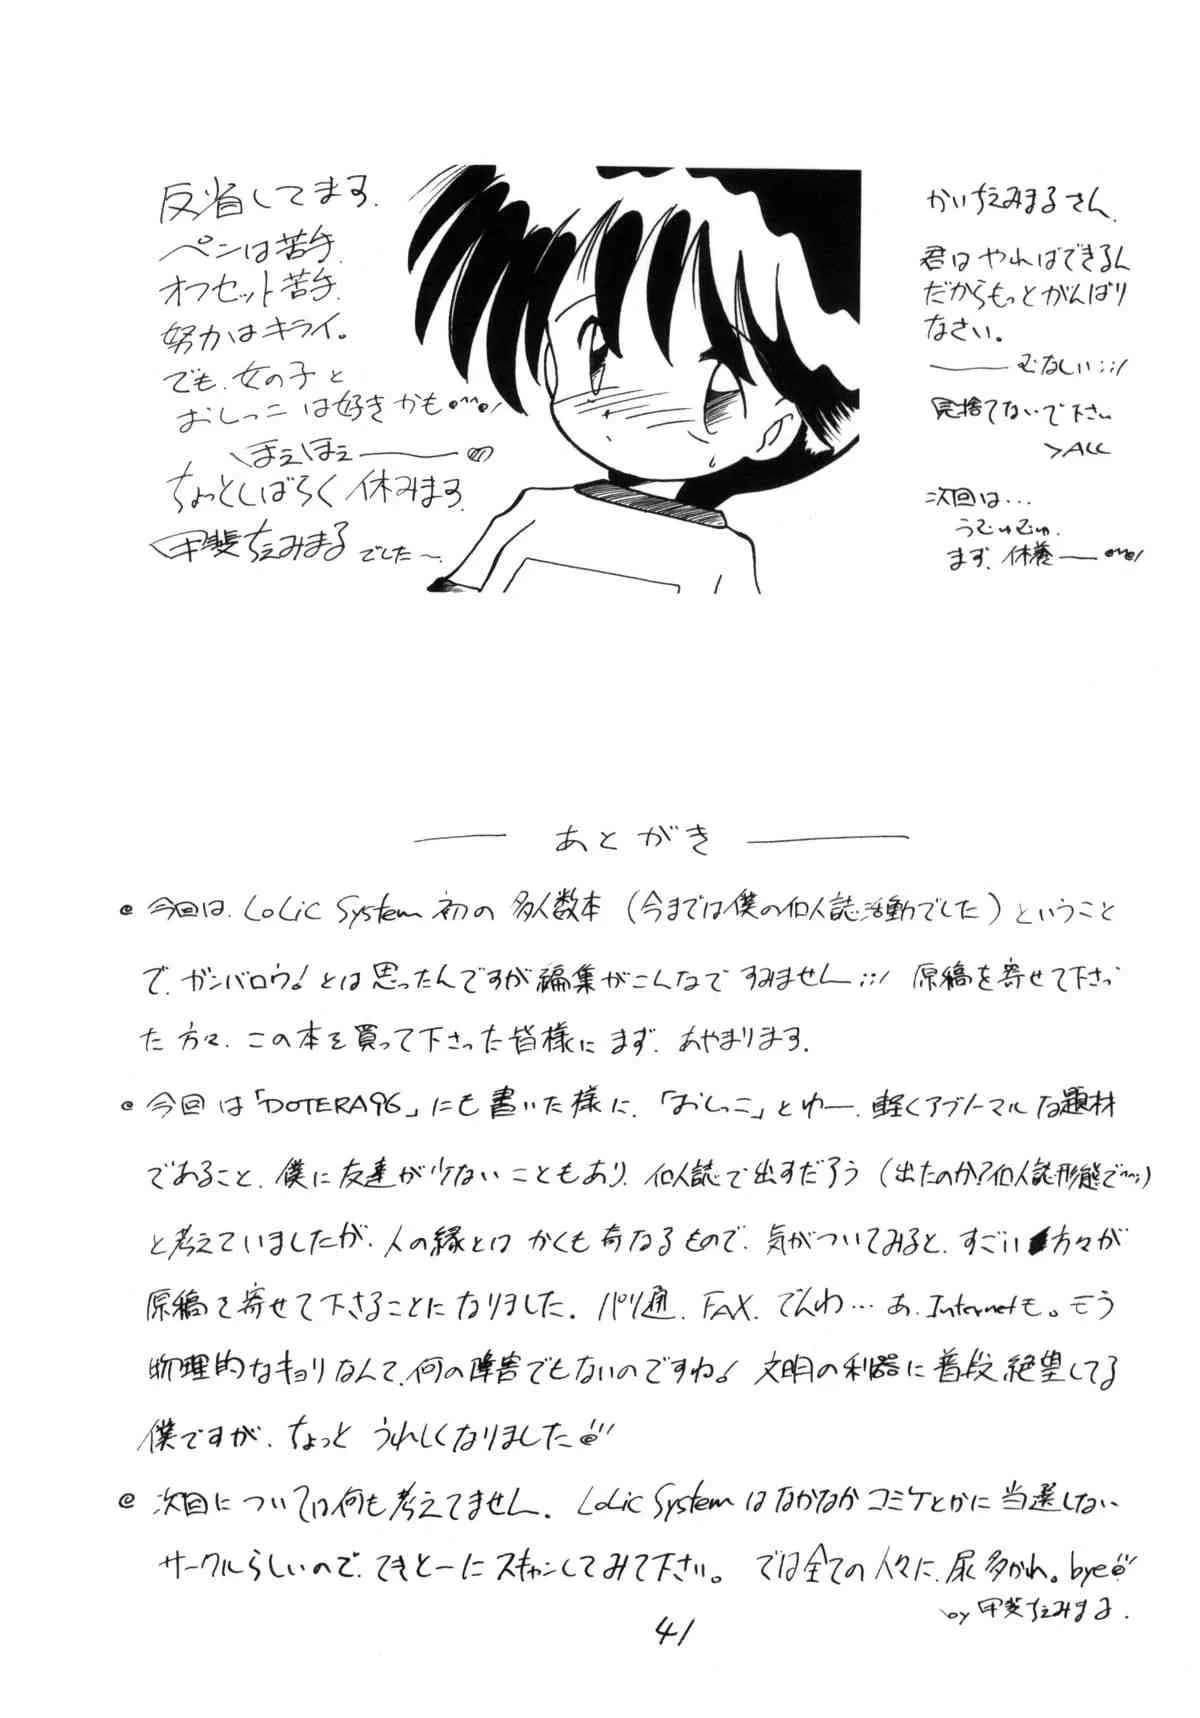 反省してます.
ペンは苦手.
オフセット苦手.
努力はキライ。
でも、女の子と
おしっこは好きかも
ほえほえ
ちょっとしばらく休みます.
甲斐ちえみまるでした〜.
かいちえみまるさん.
君はやればできるん
だからもっとがんばり
なさい。
むなしい
見捨てないで下さい
>ALL
次回は...
うむゅむゅ.
まず、休養
あとがき
今回は、LoLic System 初の多人数本（今までは僕の個人誌活動でした）ということ
で、ガンバロウ!とは思ったんですが編集がこんなですみません 原稿を寄せて下さっ
た方々、この本を買って下さった皆様にまず、あやまります.
今回は「DOTERA96」にも書いた様に、「おしっこ」とゆー、軽くアブノーマルな題材
であること、僕に友達が少ないこともあり、個人誌で出すだろう（出たのか?個人誌形態で^^;）
と考えていましたが、人の縁とはかくも奇なるもので、気がついてみると、すごい方々が
原稿を寄せて下さることになりました。パソ通、FAX、でんわ...あ、Internetも。もう
物理的なキョリなんて、何の障害でもないのですね! 文明の利器に普段絶望してる
僕ですが、ちょっとうれしくなりました
次回については何も考えてません。LoLic Systemはなかなかコミケとかに当選しない
サークルらしいので、てきとーにスキャンしてみて下さい。では全ての人々に、尿多かれ。bye
by 甲斐ちえみまる.
41